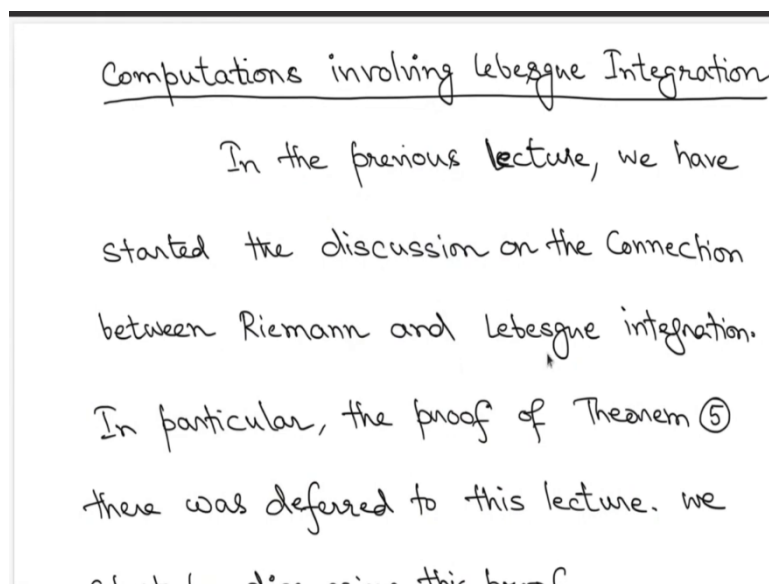 Computations involving Lebesgue Integration
In the previous lecture, we have
started the discussion on the Connection
between Riemann and Lebesgue integration.
In particular, the proof of Theorem ⑤
there was deferred to this lecture. we
this proof